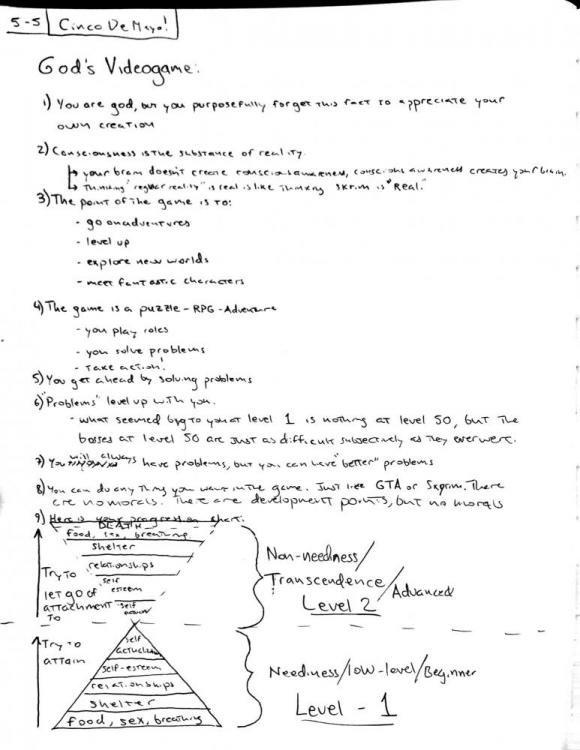 5-5 Cinco De Mayo!
God's Videogame:
1) You are god, but you purposefully forget this fact to appreciate your
own creation
2) Consciousness is the substance of reality.
↳ your brain doesn't create conscious awareness, conscious awareness creates your brain.
↳ Thinking "regular reality" is real is like thinking Skrim is "Real."
3) The point of the game is to:
- go on adventures
- level up
- explore new worlds
- meet fantastic characters
4) The game is a puzzle-RPG-Adventure
- you play roles
- you solve problems
- Take action!
5) You get ahead by solving problems
6) "Problems" level up with you.
- what seemed big to you at level 1 is nothing at level 50, but the
bosses at level 50 are just as difficult subjectively as they ever were.
7) You will always have problems, but you can have "better" problems
8) You can do any thing you want in the game. Just like GTA or Skyrim. There
are no morals. There are development points, but no morals
9) Here is your progression chart:
DEATH
food, sex, breathing
shelter
relationships
self esteem
self
Try to
let go of
attachment
to
Non-neediness/
Transcendence/Advanced
Level 2
Try to
attain
self
actualization
self-esteem
relationships
shelter
food, sex, breathing
Neediness/low-level/Beginner
Level - 1